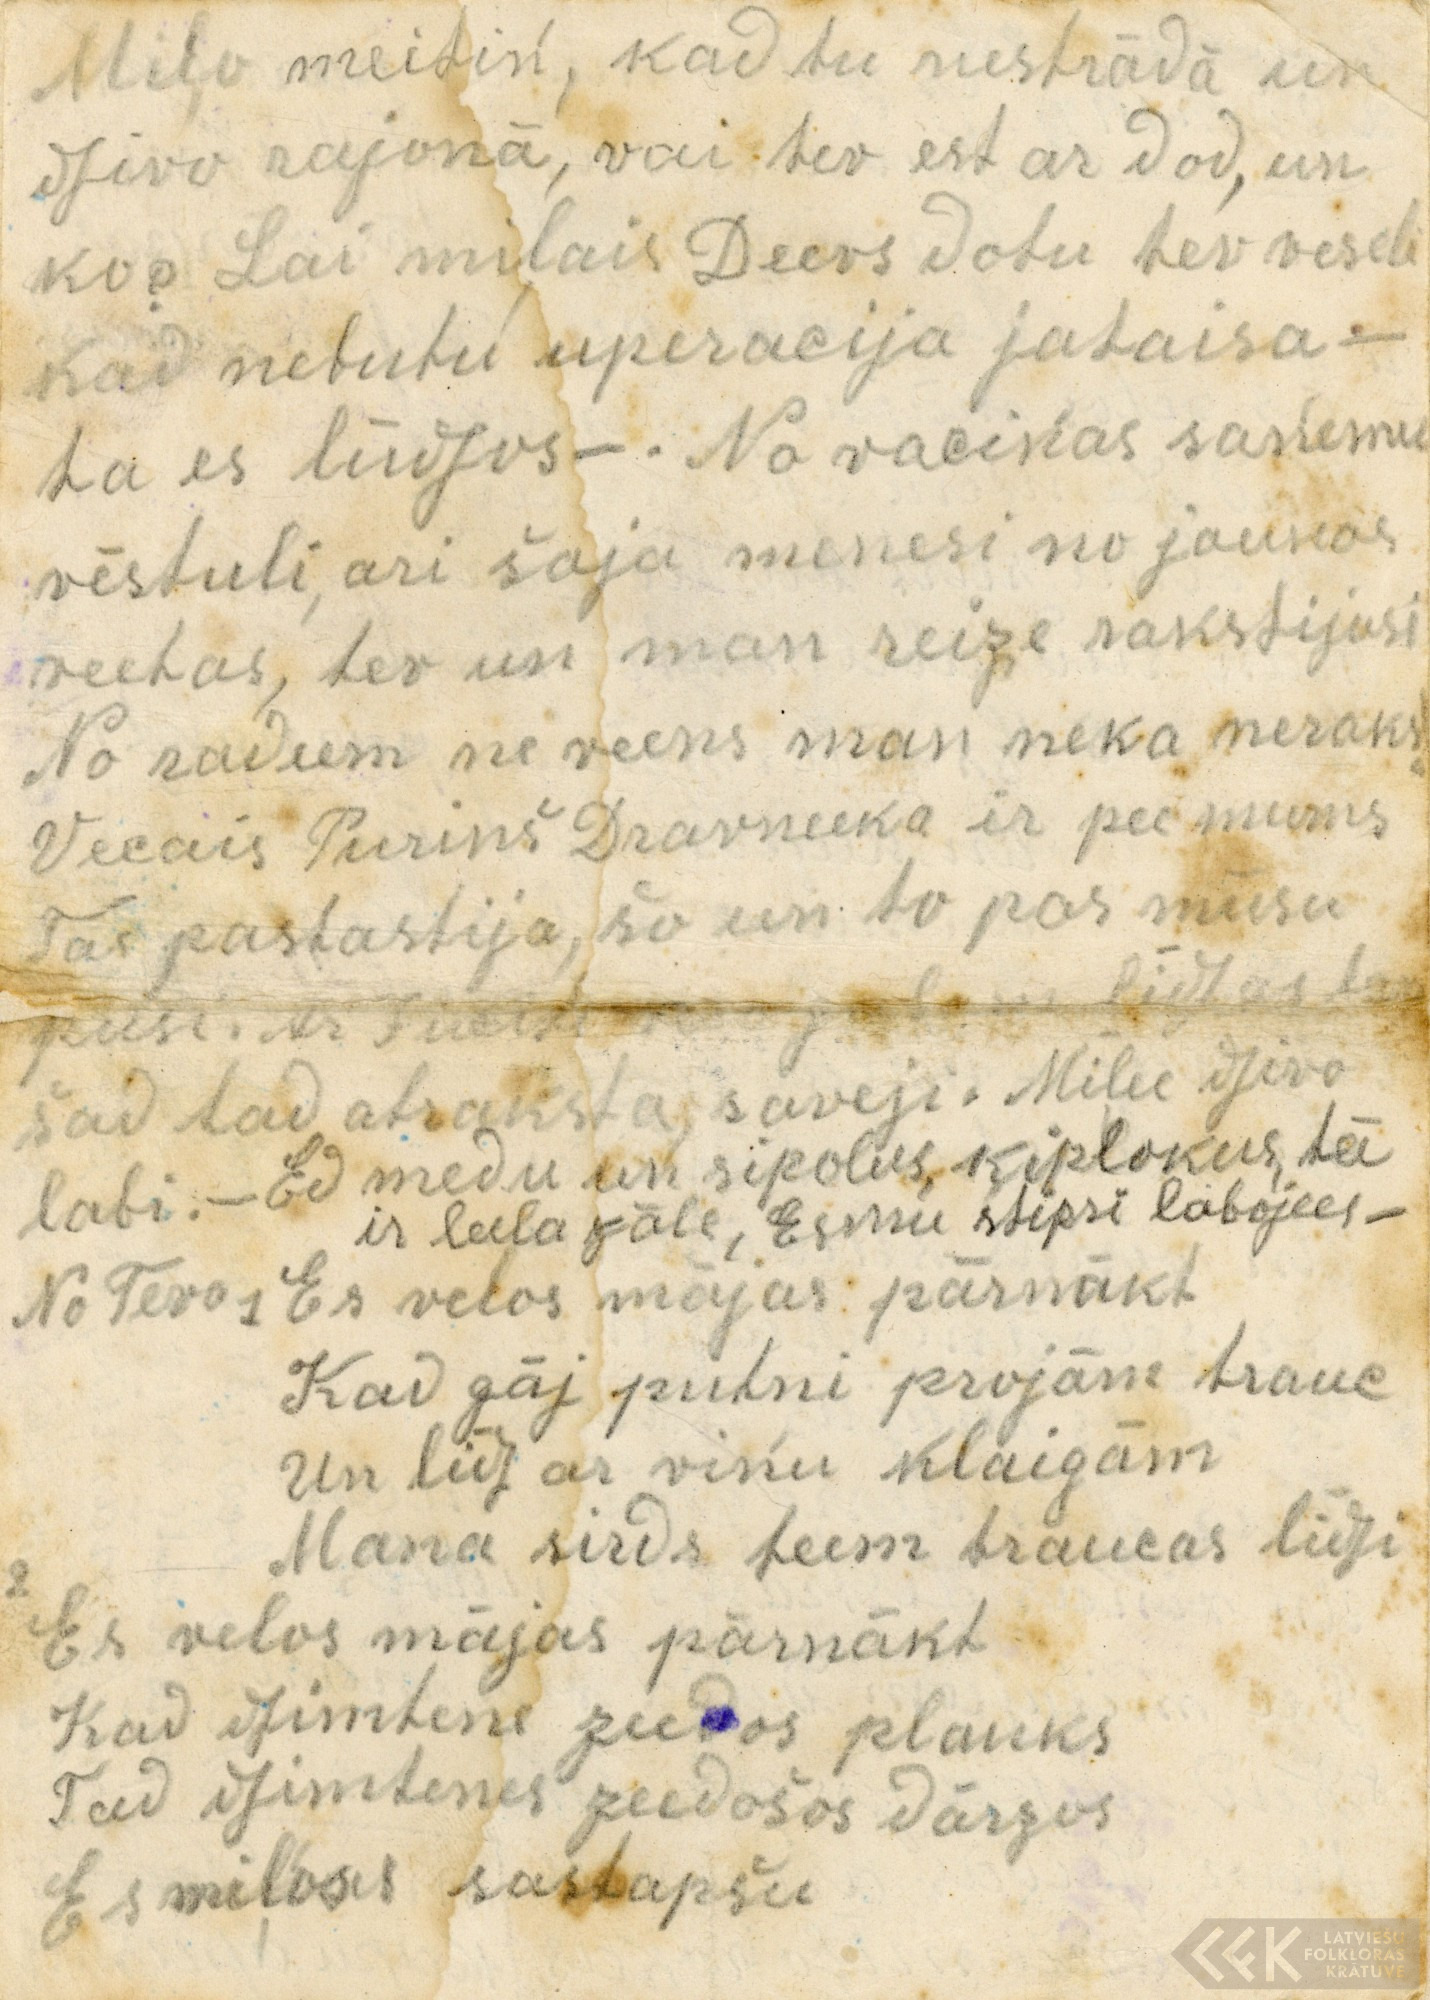 Miļo meitiņ, kad tu nestrādā un
dſivo rajonā, vai tev est ar dod, un
ko? Lai miļais Deevs dotu tev veseli
kad nebutu uperacija jataisa —
ta es lūdſos —. No vaciņas saņemu
vēstuli, ari šaja menesi no jaunas
veetas, tev un man reize rakstijusi
No radeem ne veens man neka neraks
Vecais Puriņš Dravneeka ir pee mums
Tas pastastija, šo un to pas mūsu
pusi. Ar
šad tad atraksta saveji. Miļee dſivo
labi. — Ed medu un sipolus, ķiplokus, tā
ir leela zāle, Esmu stipri labojees —
No Teva 1 Es velos mājas pārnākt
Kad gāj putni projām trauc
Un līdſ ar viņu klaigām
Mana sirds teem traucas līdſi
2
Es velos mājas pārnākt
Kad dſimtene zeedos plauks
Tad dſimtenes zeedošos dārzos
Es miļoas sastapšu
LATVIEŠU
FOLKLORAS
KRĀTUVE